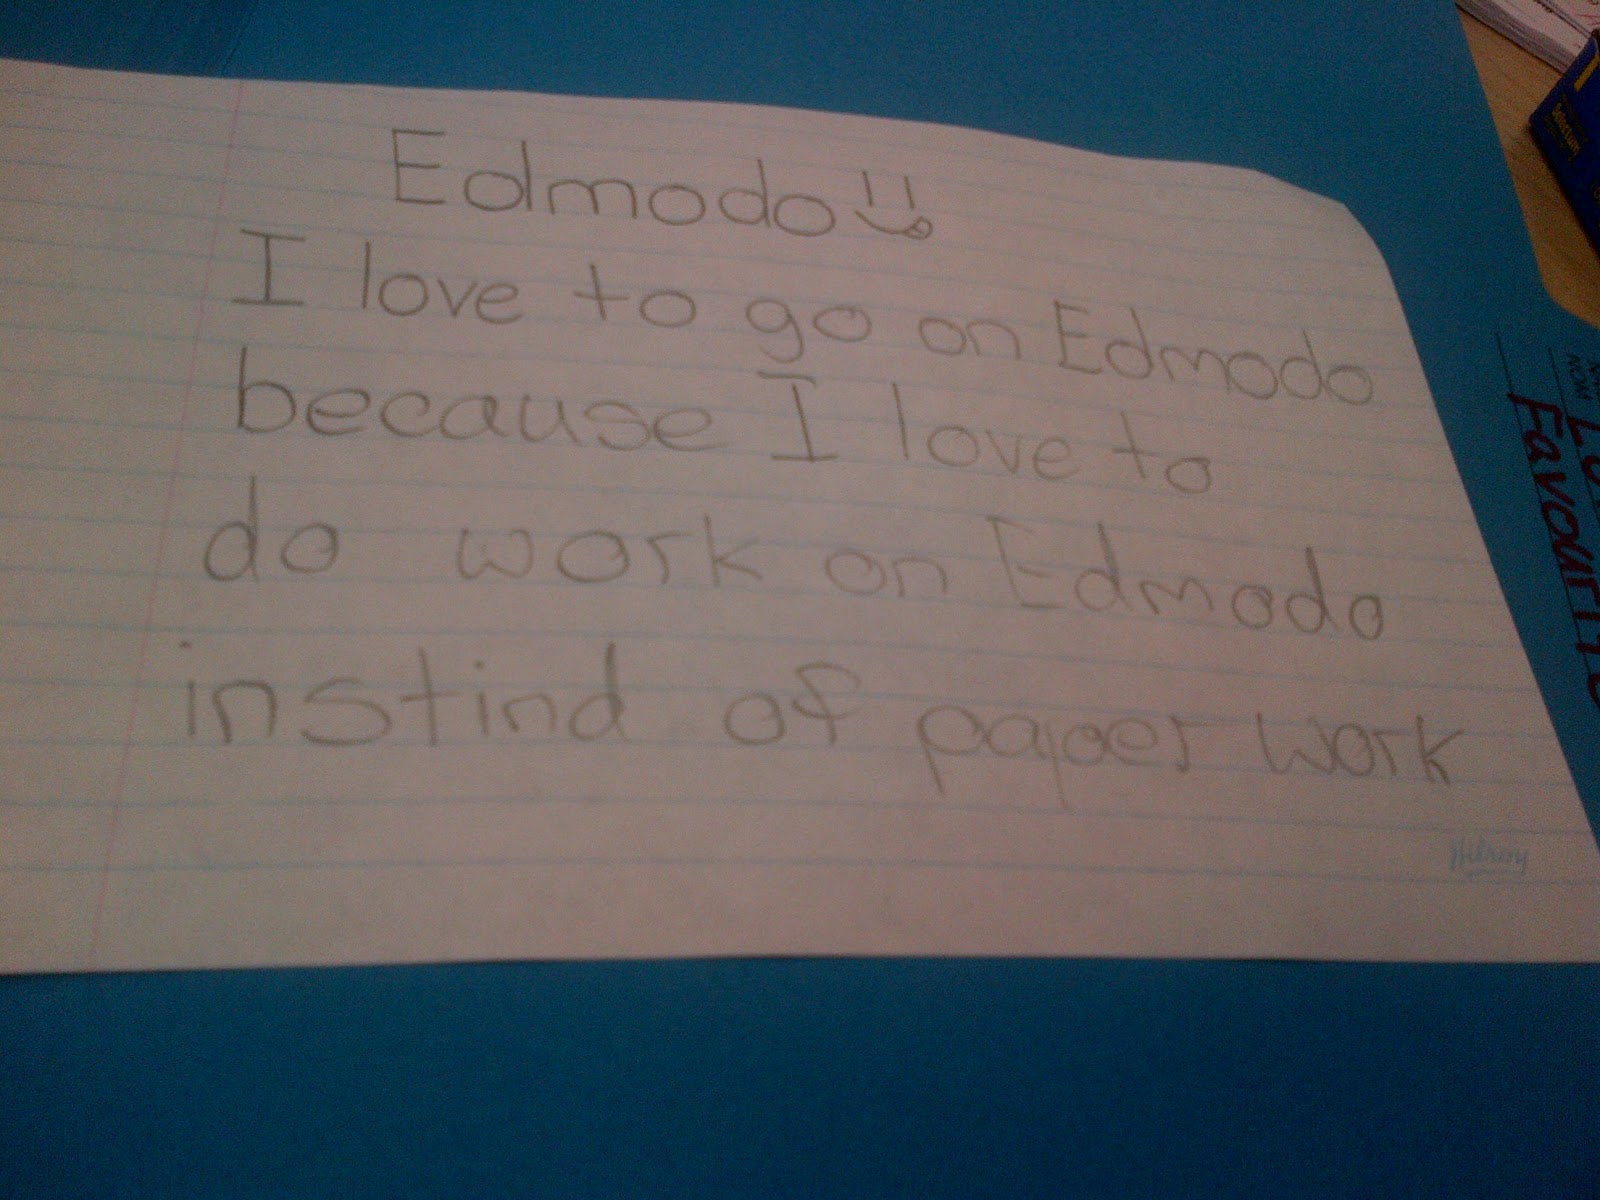 Edmodo
I love to go on Edmodo
because I love to
do work on Edmodo
instind of paper work
Hilroy
Favourite